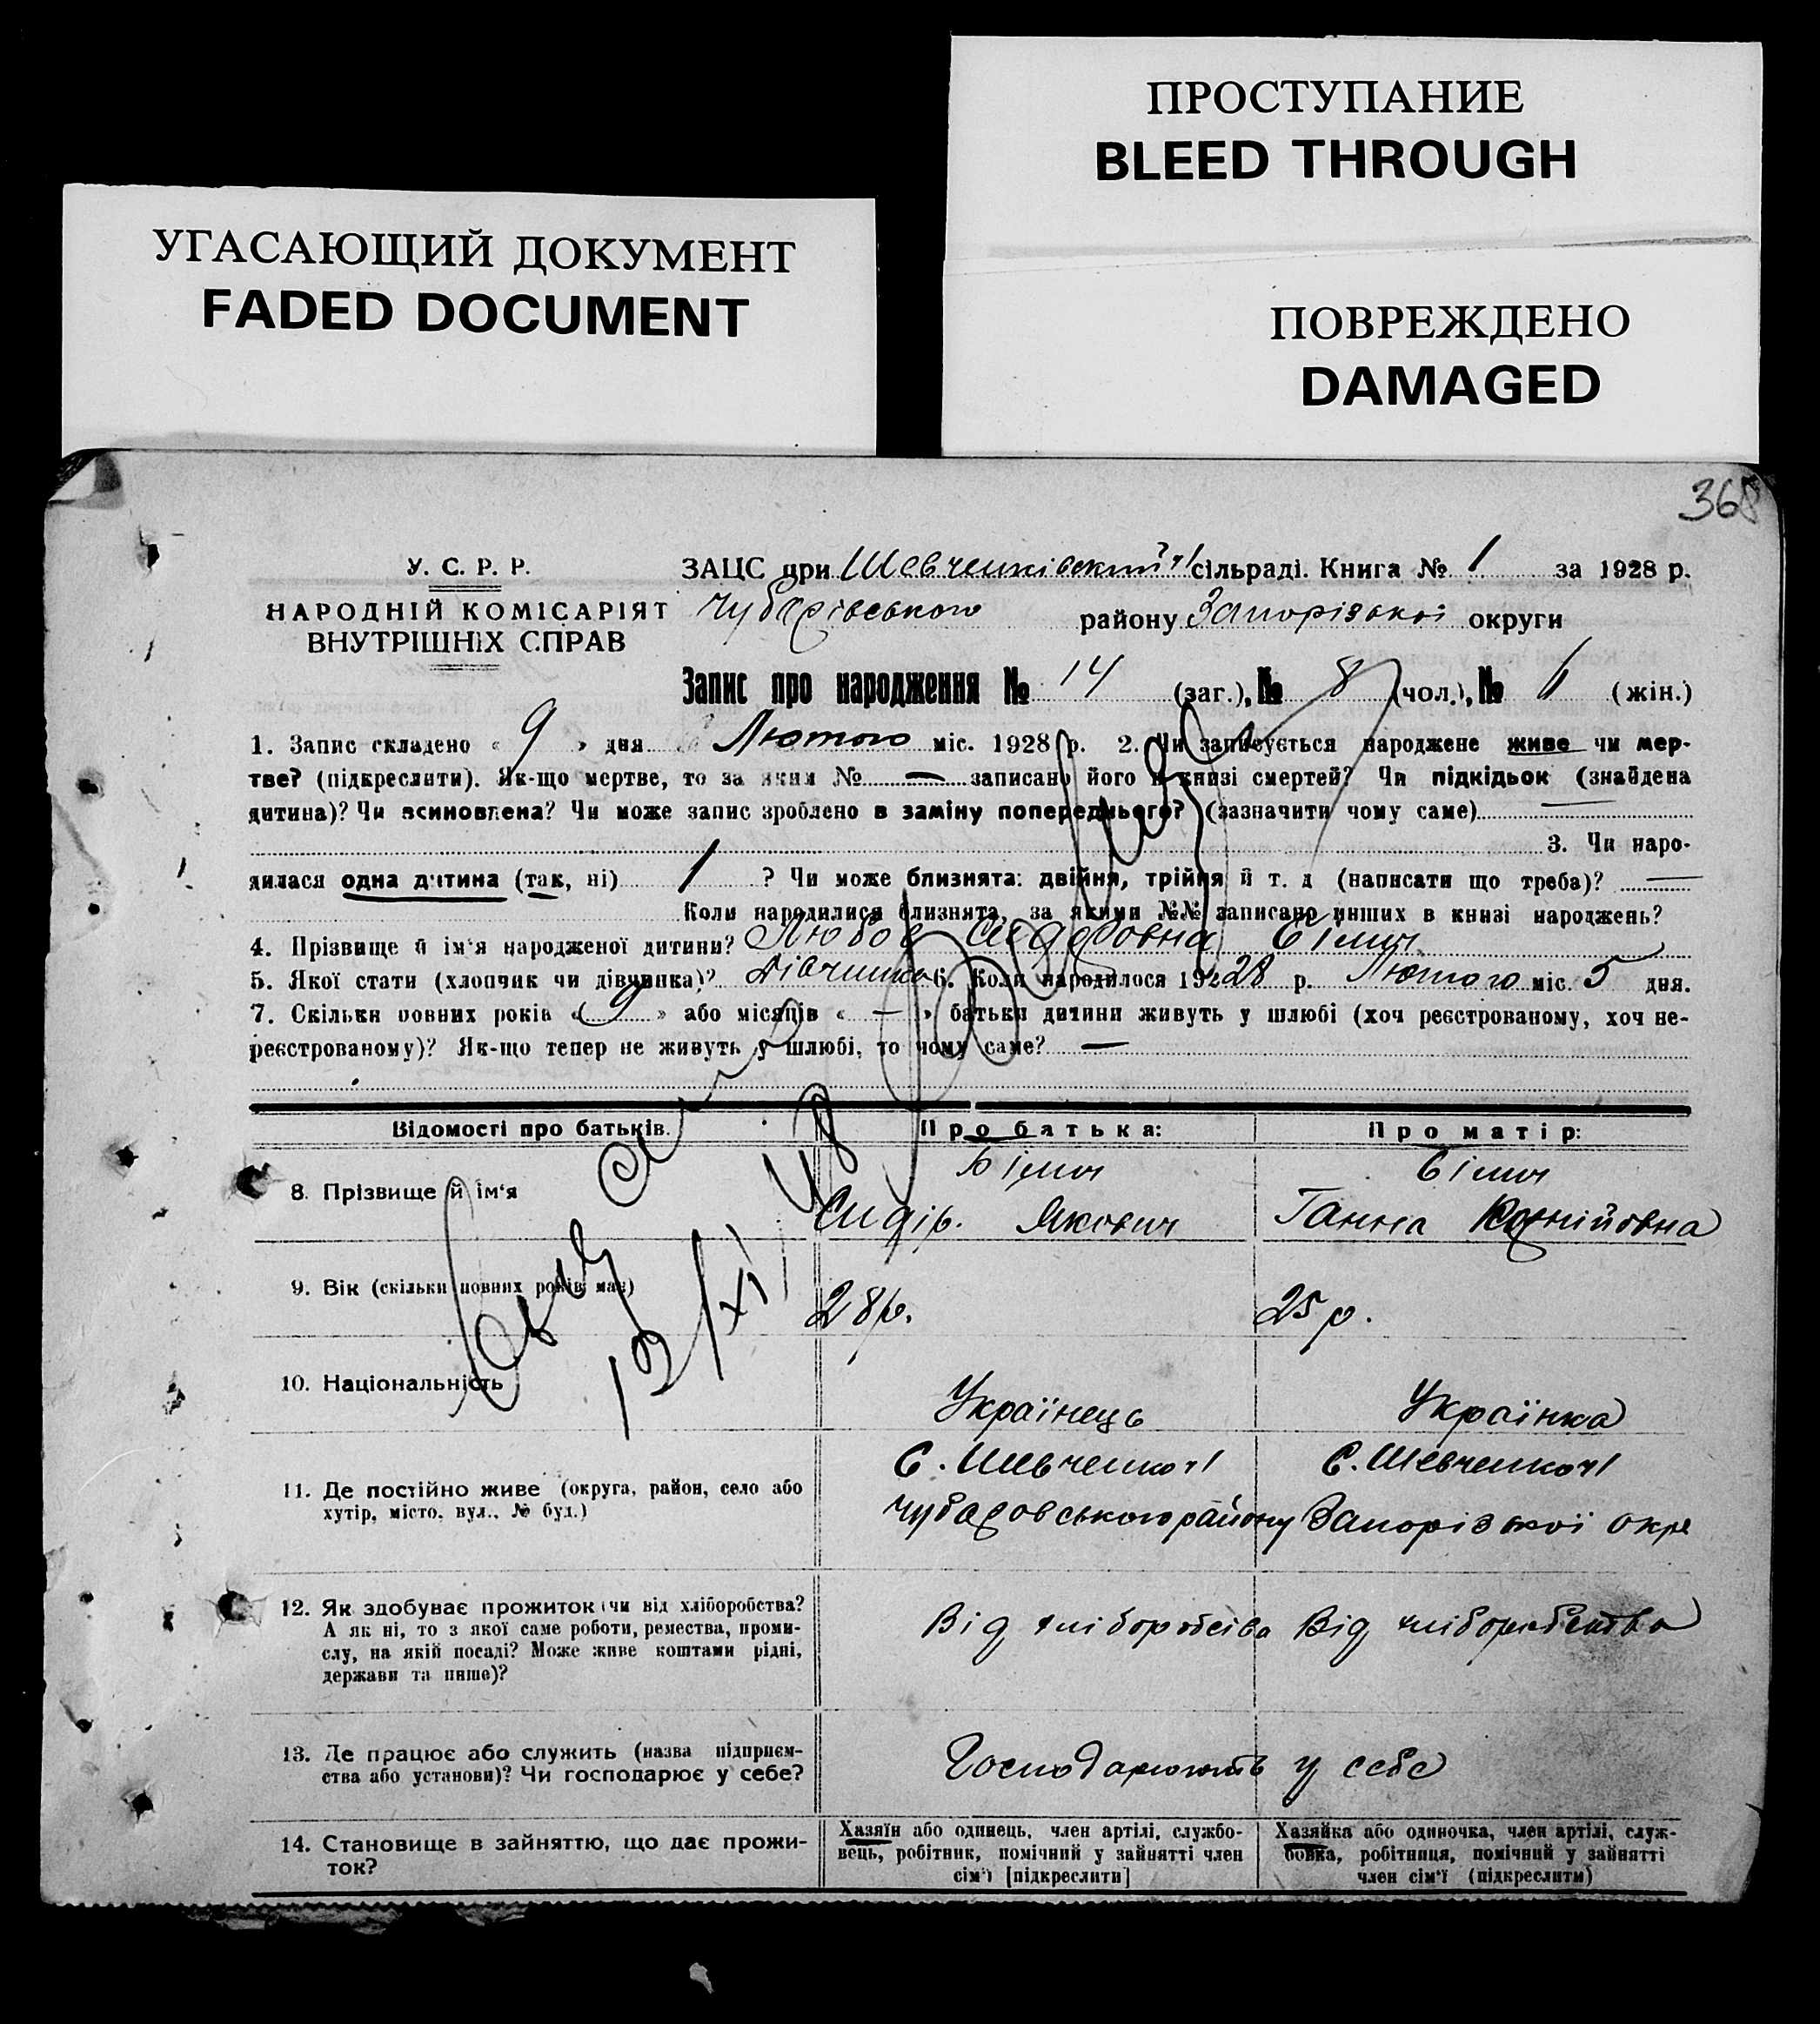 ПРОСТУПАНИЕ
BLEED THROUGH
УГАСАЮЩИЙ ДОКУМЕНТ
FADED DOCUMENT
ПОВРЕЖДЕНО
DAMAGED
368
У. С. Р. Р.
НАРОДНІЙ КОМІСАРІЯТ
ВНУТРІШНІХ СПРАВ
ЗАЦС при Шевченківський сільраді. Книга № 1 за 1928 р.
Чубарівського району Запорізької округи
Запис про народження № 14 (заг.), № 8 (чол.), № 6 (жін.)
1. Запис складено « 9 » дня Лютого міс. 1928 р. 2. Чи записується народжене живе чи мер-
тве? (підкреслити). Як-що мертве, то за яким № — записано його в книзі смертей? Чи підкідьок (знайдена
дитина)? Чи всиновлена? Чи може запис зроблено в заміну попереднього? (зазначити чому саме) —
3. Чи наро-
дилася одна дитина (так, ні) 1 ? Чи може близнята: двійня, трійня й т. д (написати що треба)? —
Коли народилися близнята, за якими №№ записано инших в книзі народжень?
4. Прізвище й ім'я народженої дитини? Любов Сидоровна Бімич
5. Якої стати (хлопчик чи дівчинка)? дівчинка 6. Коли народилося 19228 р. Лютого міс. 5 дня.
7. Скільки повних років « 9 » або місяців « — » батьки дитини живуть у шлюбі (хоч реєстрованому, хоч не-
реєстрованому)? Як-що тепер не живуть у шлюбі, то чому саме? —
Відомості про батьків. Про батька: Про матір:
8. Прізвище й ім'я Бімич Сидір. Якович Бімич Ганна
9. Вік (скільки повних років має) 28 р. 25 р.
10. Національність Українець Українка
11. Де постійно живе (округа, район, село або
хутір, місто, вул., № буд.)
С. Шевченкочі С. Шевченкочі
Чубаровського району Запорізької окр
12. Як здобуває прожиток (чи від хліборобства?
А як ні, то з якої саме роботи, ремества, проми-
слу, на якій посаді? Може живе коштами рідні,
держави та инше)?
Від хліборобсіва Від хліборобства
13. Де працює або служить (назва підприєм-
ства або установи)? Чи господарює у себе?
Господарюють у себе
14. Становище в зайняттю, що дає прожи-
ток?
Хазяїн або одинець, член артілі, службо-
вець, робітник, помічний у зайнятті член
сім'ї [підкреслити]
Хазяйка або одиночка, член артілі, служ-
бовка, робітниця, помічний у зайнятті
член сім'ї (підкреслити)